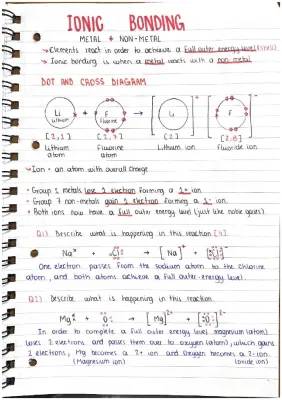 IONIC BONDING
METAL + NON-METAL
→ Elements react in order to achieve a full outer energy level (shell)
→ Ionic bonding is when a metal reacts with a non metal
DOT AND CROSS DIAGRAM
Li
Lithium
+
F
Fluorine
→
Li
+
F
-
[2,1] [2,7] [2] [2,8]
Lithium atom
Fluorine atom
Lithium ion
Fluoride ion
→ Ion = an atom with overall charge
• Group 1 metals lose 1 electron forming a 1+ ion
• Group 7 non-metals gain 1 electron forming a 1- ion
• Both ions now have a full outer energy level (just like noble gases)
Q1) Describe what is happening in this reaction [4].
Na + Cl → [Na]+ + [Cl]-
One electron passes from the sodium atom to the chlorine
atom, and both atoms achieve a full outer energy level.
Q2) Describe what is happening in this reaction.
Mg + O → [Mg]2+ + [O]2-
In order to complete a full outer energy level, magnesium (atom)
loses 2 electrons and passes them over to oxygen (atom), which gains
2 electrons, Mg becomes a 2+ ion and Oxygen becomes a 2- ion.
(Magnesium ion) (Oxide ion)